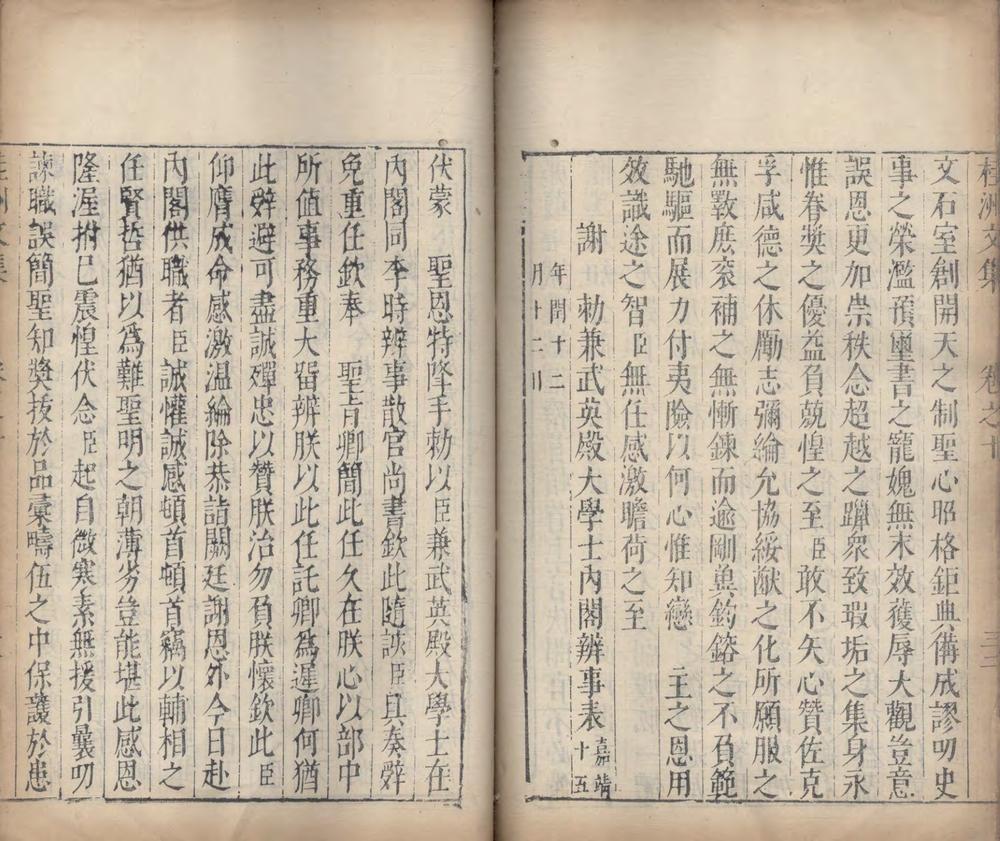 桂洲文集 卷之十
文石室創開天之制聖心昭格鉅典備成謬叨史
事之榮濫預璽書之寵媿無末效獲辱大觀豈意
誤恩更加崇秩念超越之躐衆致瑕垢之集身永
惟眷奬之優益負兢惶之至臣敢不矢心贊佐克
孚咸德之休勵志彌綸允協綏猷之化所願服之
無斁庶袞補之無慚鍊而逾剛兾鈞鎔之不負範
馳驅而展力付夷險以何心惟知戀 主之恩用
效識途之智臣無任感激瞻荷之至
謝 勑兼武英殿大學士內閣辨事表嘉靖十五
年閏十二
月十二
伏蒙 聖恩特隆手勑以臣兼武英殿大學士在
內閣同李時辨事散官尚書欽此隨該臣具奏辤
免重任欽奉 聖旨卿簡此任久在朕心以部中
所值事務重大留辨朕以此任託卿爲遲卿何猶
此辤避可盡誠殫忠以贊朕治勿負朕懷欽此臣
仰膺成命感激溫綸除恭詣闕廷謝恩外今日赴
內閣供職者臣誠懽誠感頓首頓首竊以輔相之
任賢哲猶以爲難聖明之朝薄劣豈能堪此感恩
隆渥拊己震惶伏念臣起自微寒素無援引曩叨
諫職誤簡聖知奬拔於品彙疇伍之中保護於患